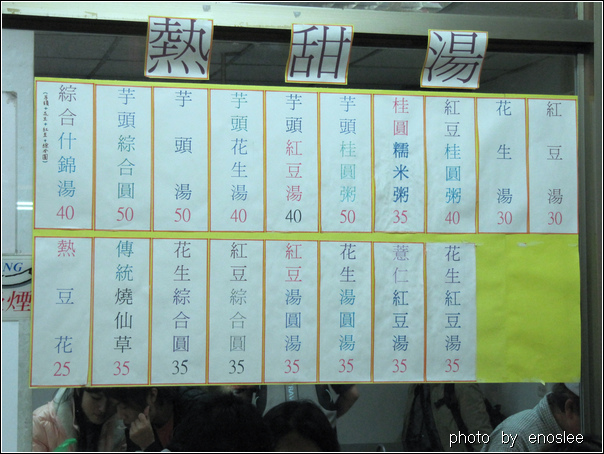 熱甜湯
綜合什錦湯 40
芋頭綜合圓 50
芋頭湯 50
芋頭花生湯 40
芋頭紅豆湯 40
芋頭桂圓粥 50
桂圓糯米粥 35
紅豆桂圓粥 40
花生湯 30
紅豆湯 30
熱豆花 25
傳統燒仙草 35
花生綜合圓 35
紅豆綜合圓 35
紅豆湯圓湯 35
花生湯圓湯 35
薏仁紅豆湯 35
花生紅豆湯 35
NG
煙
photo by enoslee